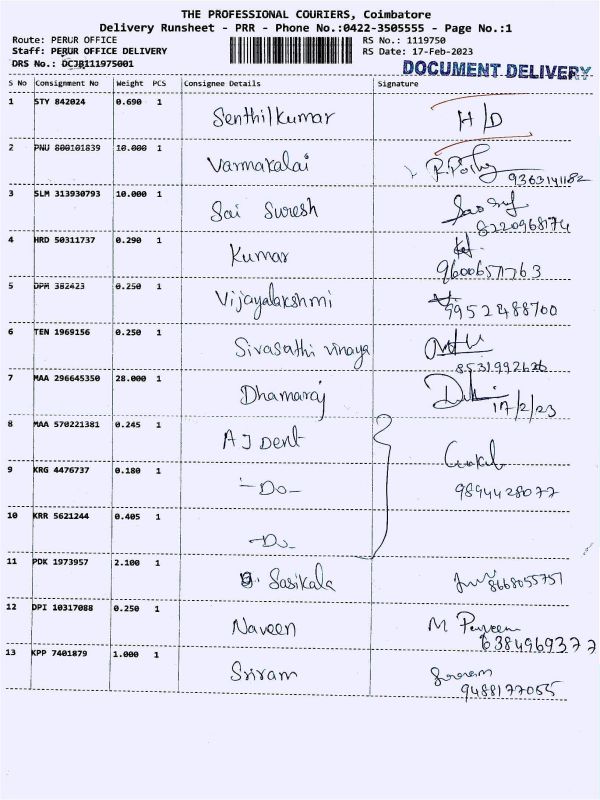 THE PROFESSIONAL COURIERS, Coimbatore
Delivery Runsheet - PRR - Phone No.:0422-3505555 - Page No.:1
Route: PERUR OFFICE RS No.: 1119750
Staff: PERUR OFFICE DELIVERY RS Date: 17-Feb-2023
DRS No.: DCJB111975001 DOCUMENT DELIVERY
S No Consignment No Weight PCS Consignee Details Signature
1 STY 842024 0.690 1 Senthilkumar H/D
2 PNU 800101839 10.000 1 Varmakalai 9363141182
3 SLM 313930793 10.000 1 Sai Suresh
8220968174
4 HRD 50311737 0.290 1 Kumar
9600657763
5 DPM 382423 0.250 1 Vijayalakshmi 9952488700
6 TEN 1969156 0.250 1 Sivasathi vinaya
8531992626
7 MAA 296645350 28.000 1 Dhamaraj 17/2/23
8 MAA 570221381 0.245 1 A J Dent
9 KRG 4476737 0.180 1 -Do- 9894428077
10 KRR 5621244 0.405 1 -Do-
11 PDK 1973957 2.100 1 Sasikala 8668055751
12 DPI 10317088 0.250 1 Naveen M Praveen
6384969377
13 KPP 7401879 1.000 1 Sriram Sriram
9488177055